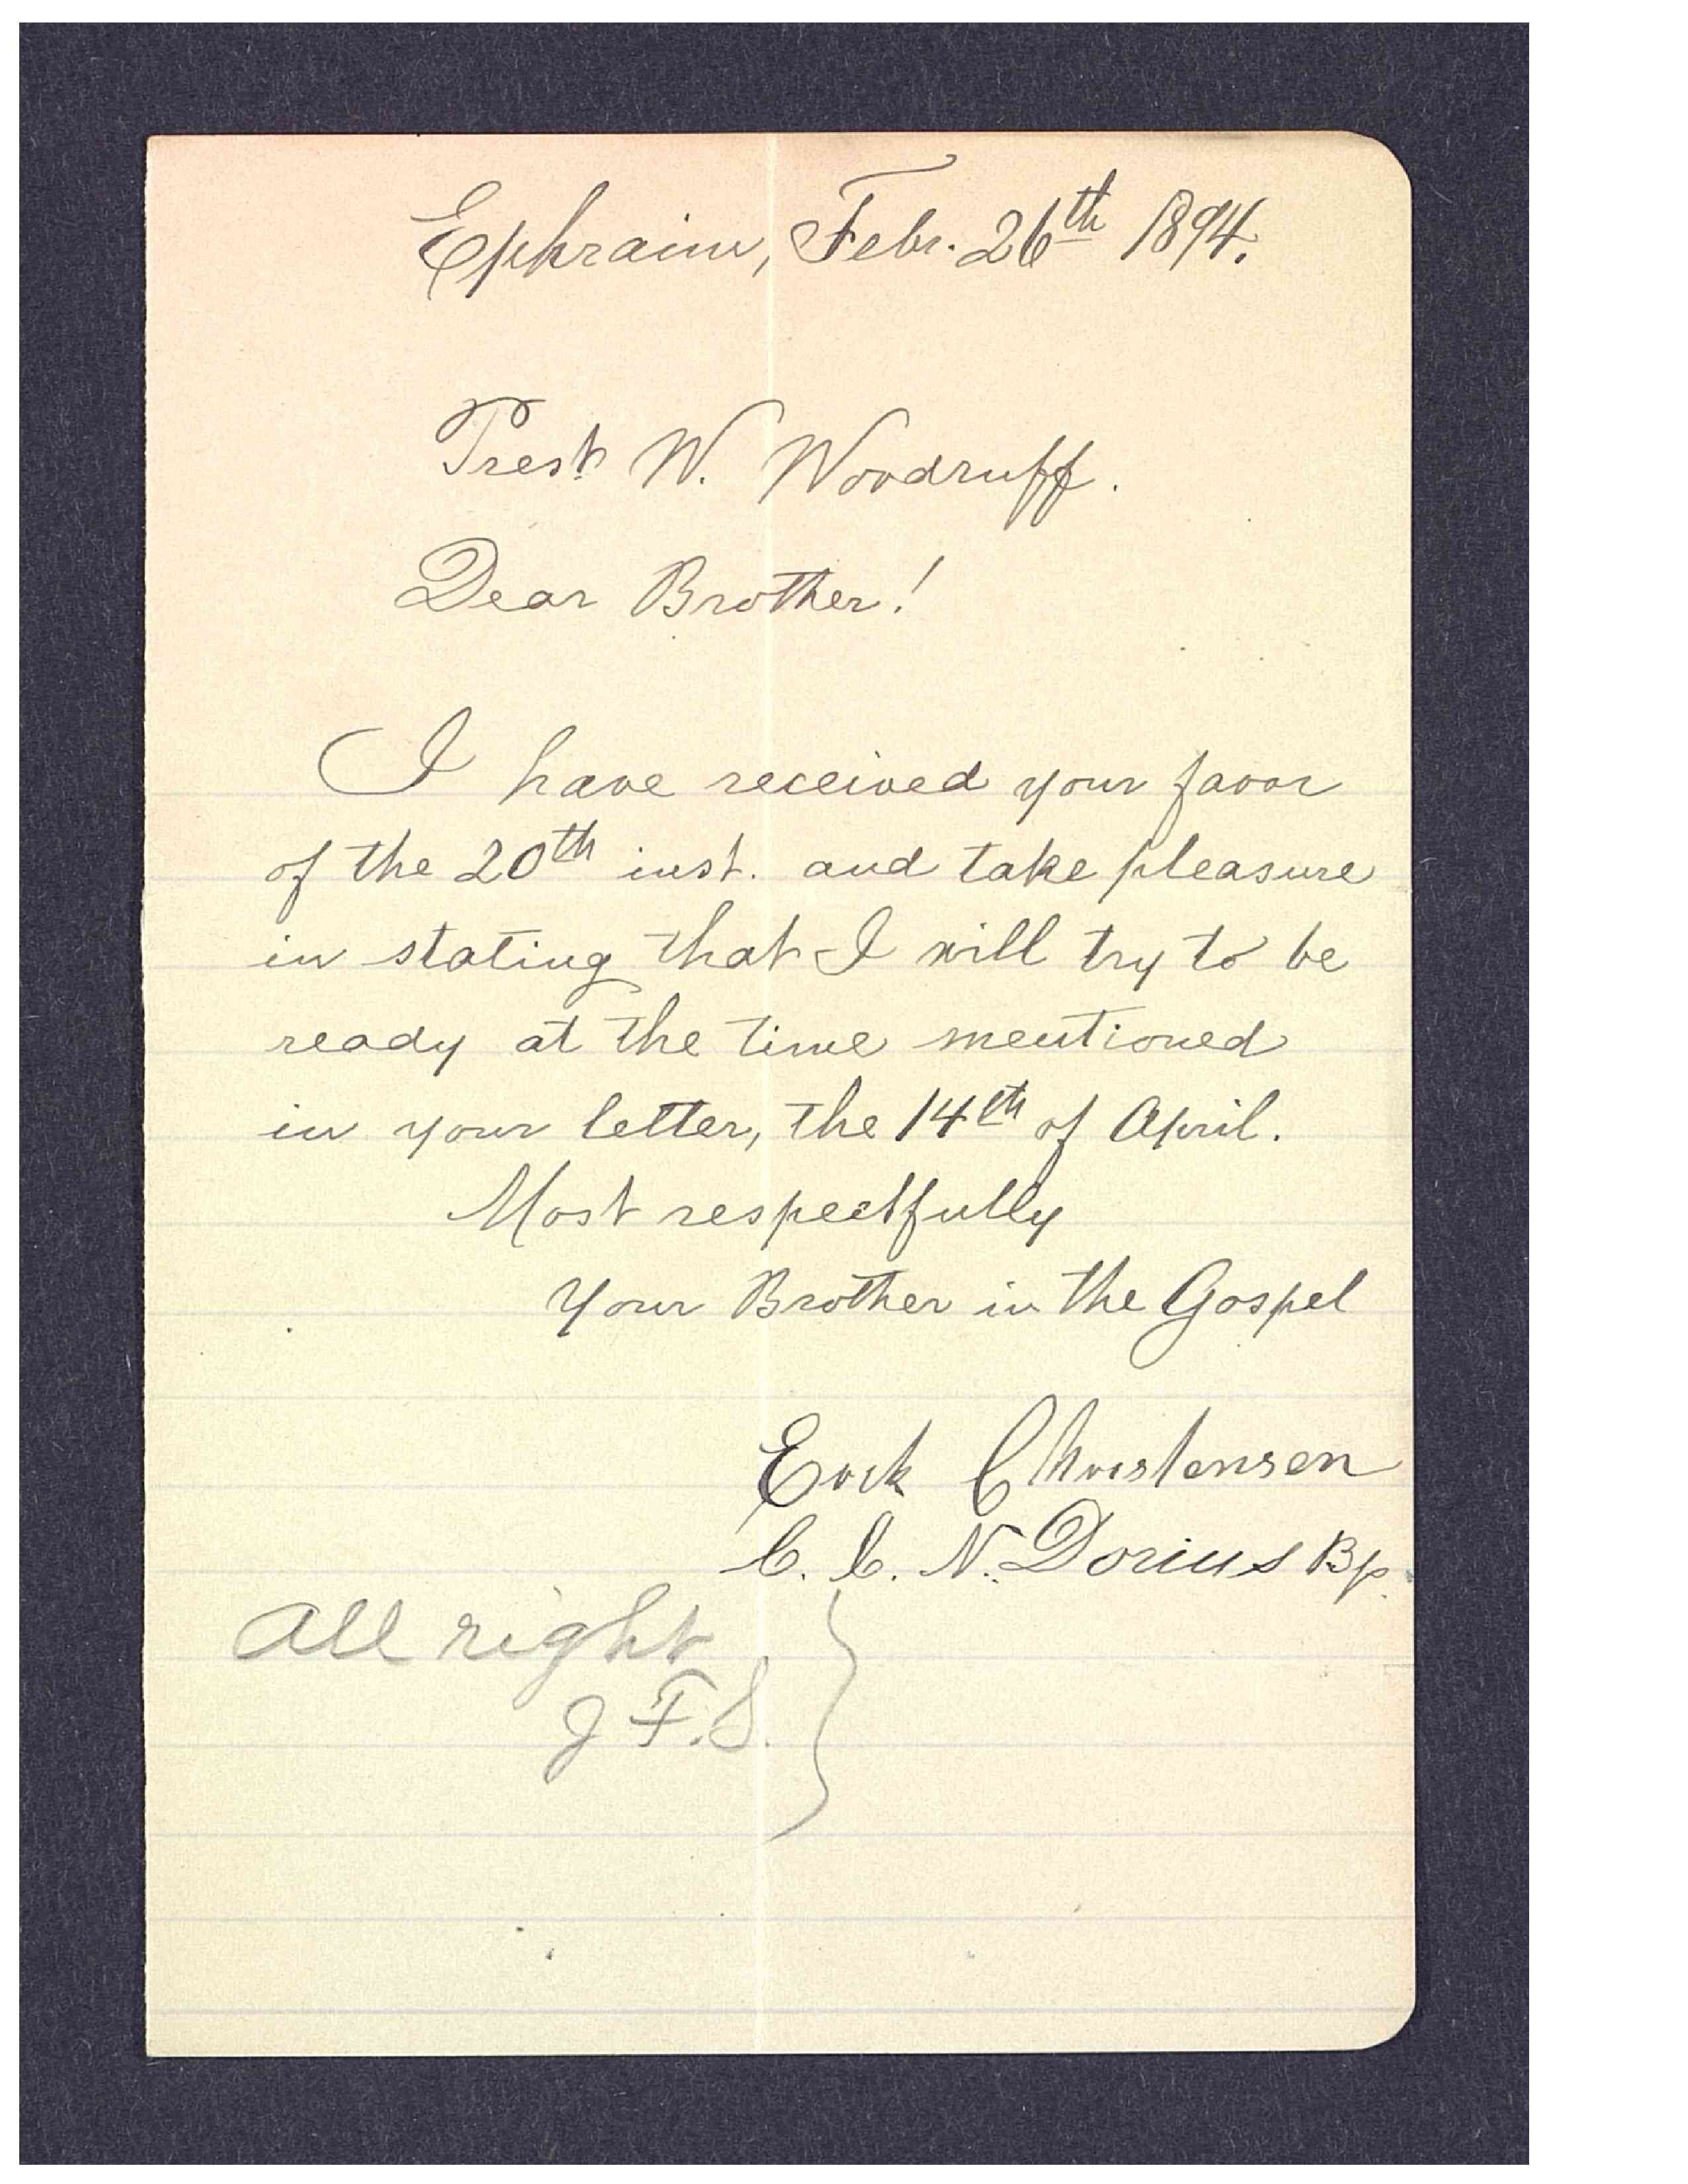 Ephraim, Febr. 26th 1894.
Prest W. Woodruff.
Dear Brother!
I have received your favor
of the 20th inst. and take pleasure
in stating that I will try to be
ready at the time mentioned
in your letter, the 14th of April.
Most respectfully
Your Brother in the Gospel
Erick Christensen
C. C. N. Dorius Bp.
All right
J. F. S.